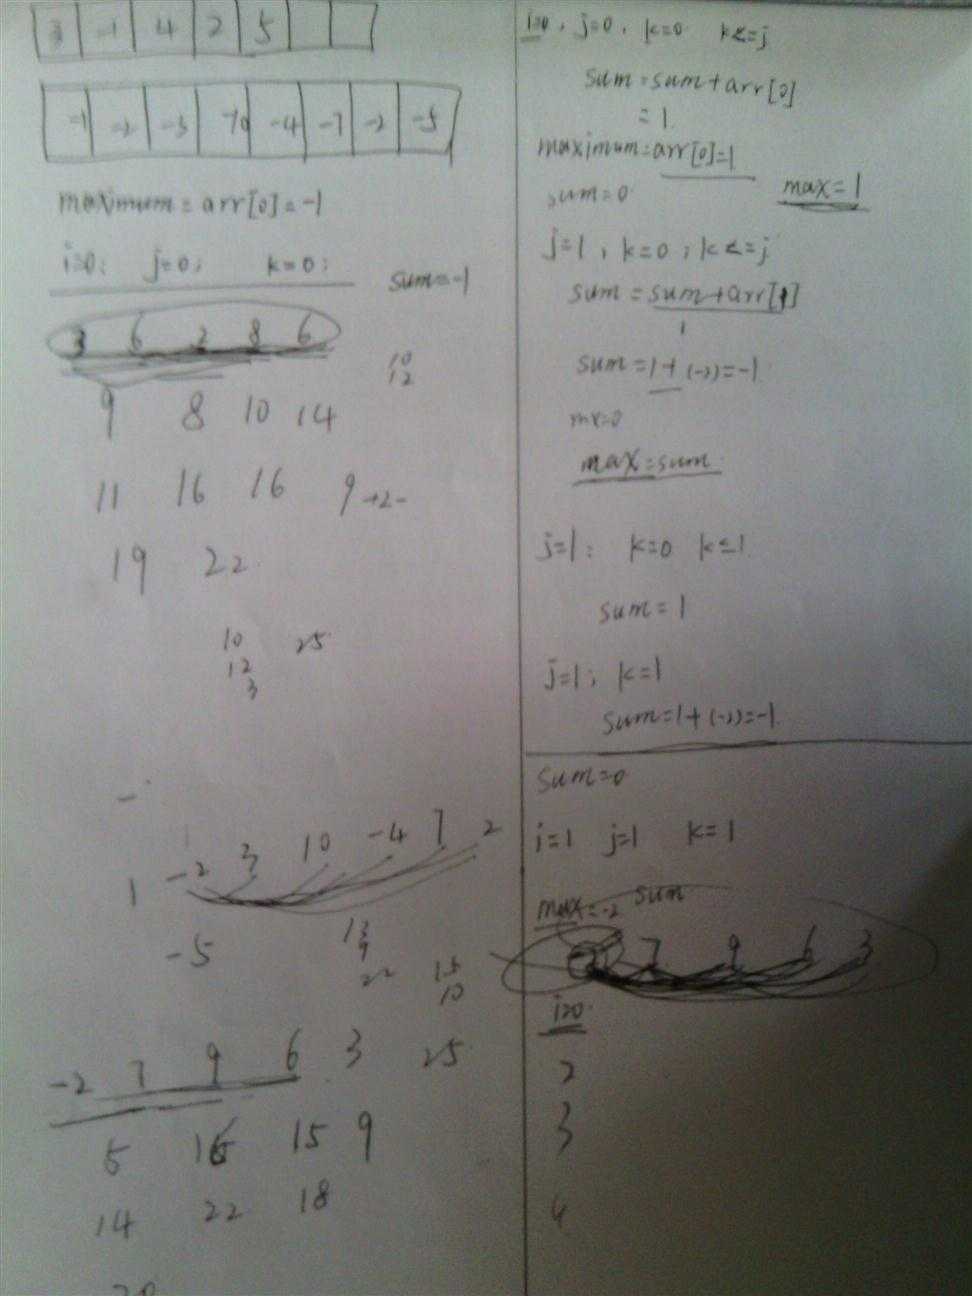 3 -1 4 2 5
-1 -2 -3 -10 -4 -7 -2 -5
maximum = arr[0] = -1
i=0; j=0; k=0;
sum=-1
3 6 2 8 6
10
12
9 8 10 14
11 16 16 9
19 22
10 25
12
3
1 -2 3 10 -4 7 2
-5
13
9
22
15
10
-2 7 9 6 3 25
5 16 15 9
14 22 18
i=0, j=0, k=0 k<=j
sum=sum+arr[0]
=1.
maximum=arr[0]=1
sum=0
max=1
j=1, k=0; k<=j
sum=sum+arr[1]
1
sum=1+(-2)=-1
max=sum
j=1: k=0 k≤1
sum=1
j=1; k=1
sum=1+(-2)=-1.
sum=0
i=1 j=1 k=1
max=-2 sum
7 9 6 3
i=0
2
3
4